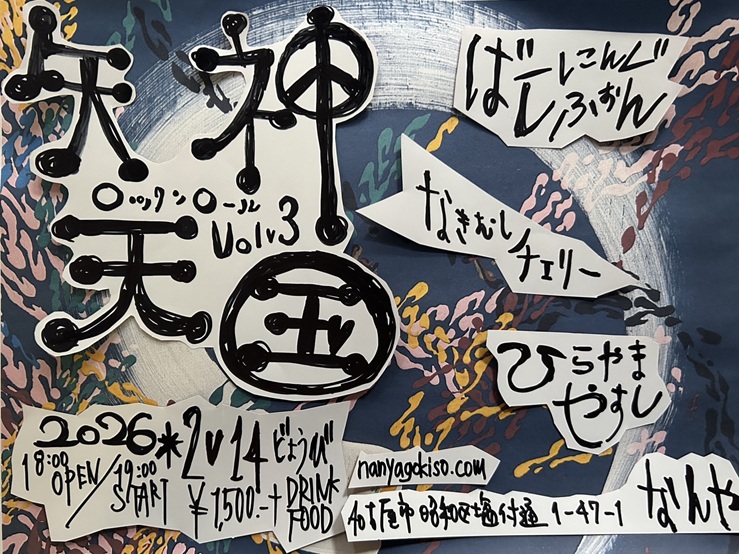 矢神
ロックンロール
Vol.3
天国
ばーしーこんぐ
ふぉん
なきむし
チェリー
ひらやま
やすし
2026*2.14どようび
18:00 OPEN/19:00 START ¥1,500.-+DRINK FOOD
nanyagokiso.com
名古屋市昭和区塩付通1-47-1
なんや